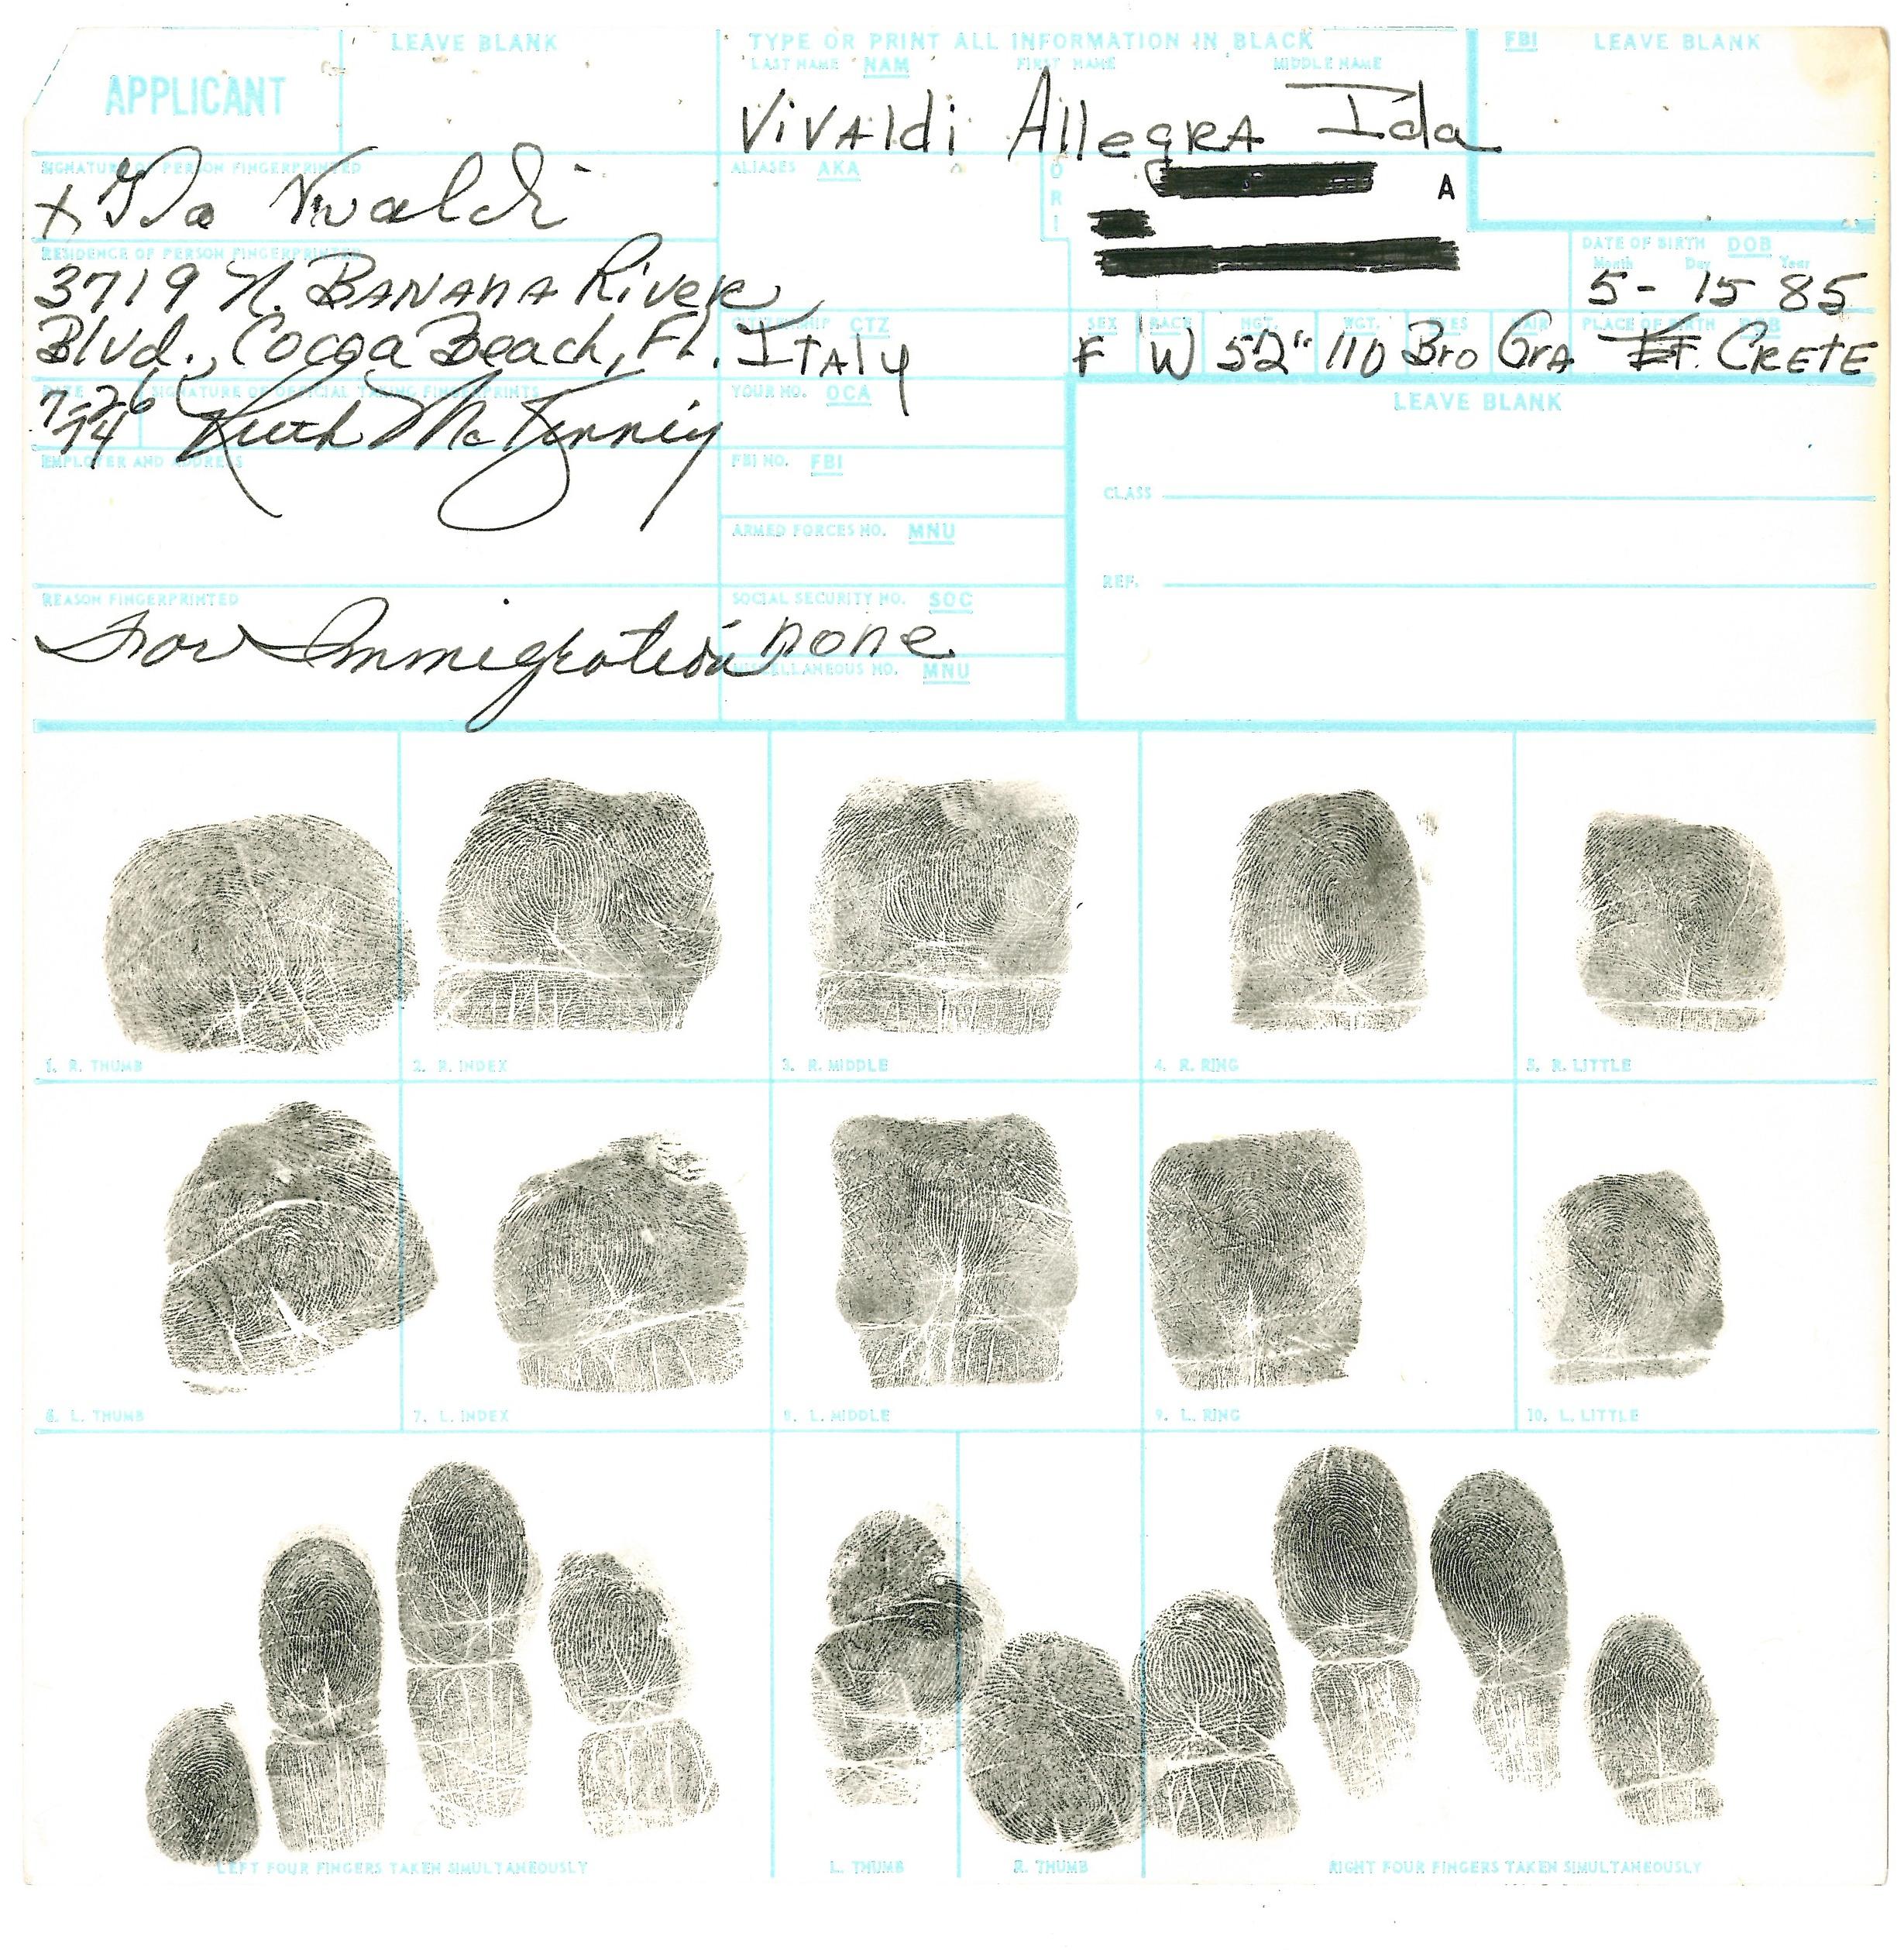 APPLICANT
LEAVE BLANK
TYPE OR PRINT ALL INFORMATION IN BLACK
LAST NAME NAM FIRST NAME MIDDLE NAME
FBI LEAVE BLANK
Vivaldi Allegra Ida
SIGNATURE OF PERSON FINGERPRINTED
x Ida Vivaldi
ALIASES AKA
ORI
A
RESIDENCE OF PERSON FINGERPRINTED
3719 N. Banana River
Blvd., Cocoa Beach, Fl.
DATE OF BIRTH DOB
Month Day Year
5- 15 85
CITIZENSHIP CTZ
Italy
SEX RACE HGT. WGT. EYES HAIR PLACE OF BIRTH POB
F W 5'2" 110 Bro Gra CRETE
DATE SIGNATURE OF OFFICIAL TAKING FINGERPRINTS
7-26
74 Ruth McKinney
YOUR NO. OCA
LEAVE BLANK
EMPLOYER AND ADDRESS
FBI NO. FBI
CLASS
ARMED FORCES NO. MNU
REF.
REASON FINGERPRINTED
For Immigration
SOCIAL SECURITY NO. SOC
none
MISCELLANEOUS NO. MNU
1. R. THUMB
2. R. INDEX
3. R. MIDDLE
4. R. RING
5. R. LITTLE
6. L. THUMB
7. L. INDEX
8. L. MIDDLE
9. L. RING
10. L. LITTLE
LEFT FOUR FINGERS TAKEN SIMULTANEOUSLY
L. THUMB
R. THUMB
RIGHT FOUR FINGERS TAKEN SIMULTANEOUSLY